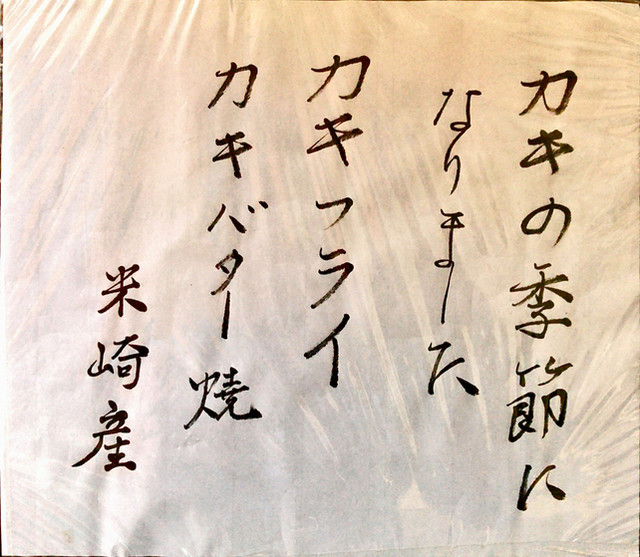 カキの季節に
なりました
カキフライ
カキバター焼
米崎産